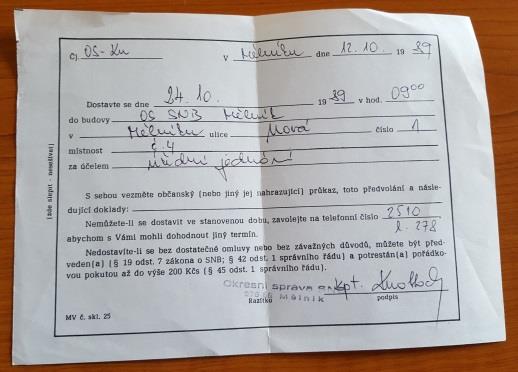 Čj OS-Kn v Mělníku dne 12.10. 1989
Dostavte se dne 24.10. 1989 v hod. 09⁰⁰
do budovy OS SNB Mělník
v Mělníku ulice Nová číslo 1
místnost č. 4
za účelem úřední jednání
S sebou vezměte občanský (nebo jiný jej nahrazující) průkaz, toto předvolání a násle-
dující doklady:
Nemůžete-li se dostavit ve stanovenou dobu, zavolejte na telefonní číslo 2510
abychom s Vámi mohli dohodnout jiný termín. l. 278
Nedostavíte-li se bez dostatečné omluvy nebo bez závažných důvodů, můžete být před-
veden(a) (§ 19 odst. 7 zákona o SNB; § 42 odst. 1 správního řádu) a potrestán(a) pořádko-
vou pokutou až do výše 200 Kčs (§ 45 odst. 1 správního řádu).
Okresní správa SNB kpt.
Mělník
Razítko podpis
MV č. skl. 25
(zde slepit - nesešívat)